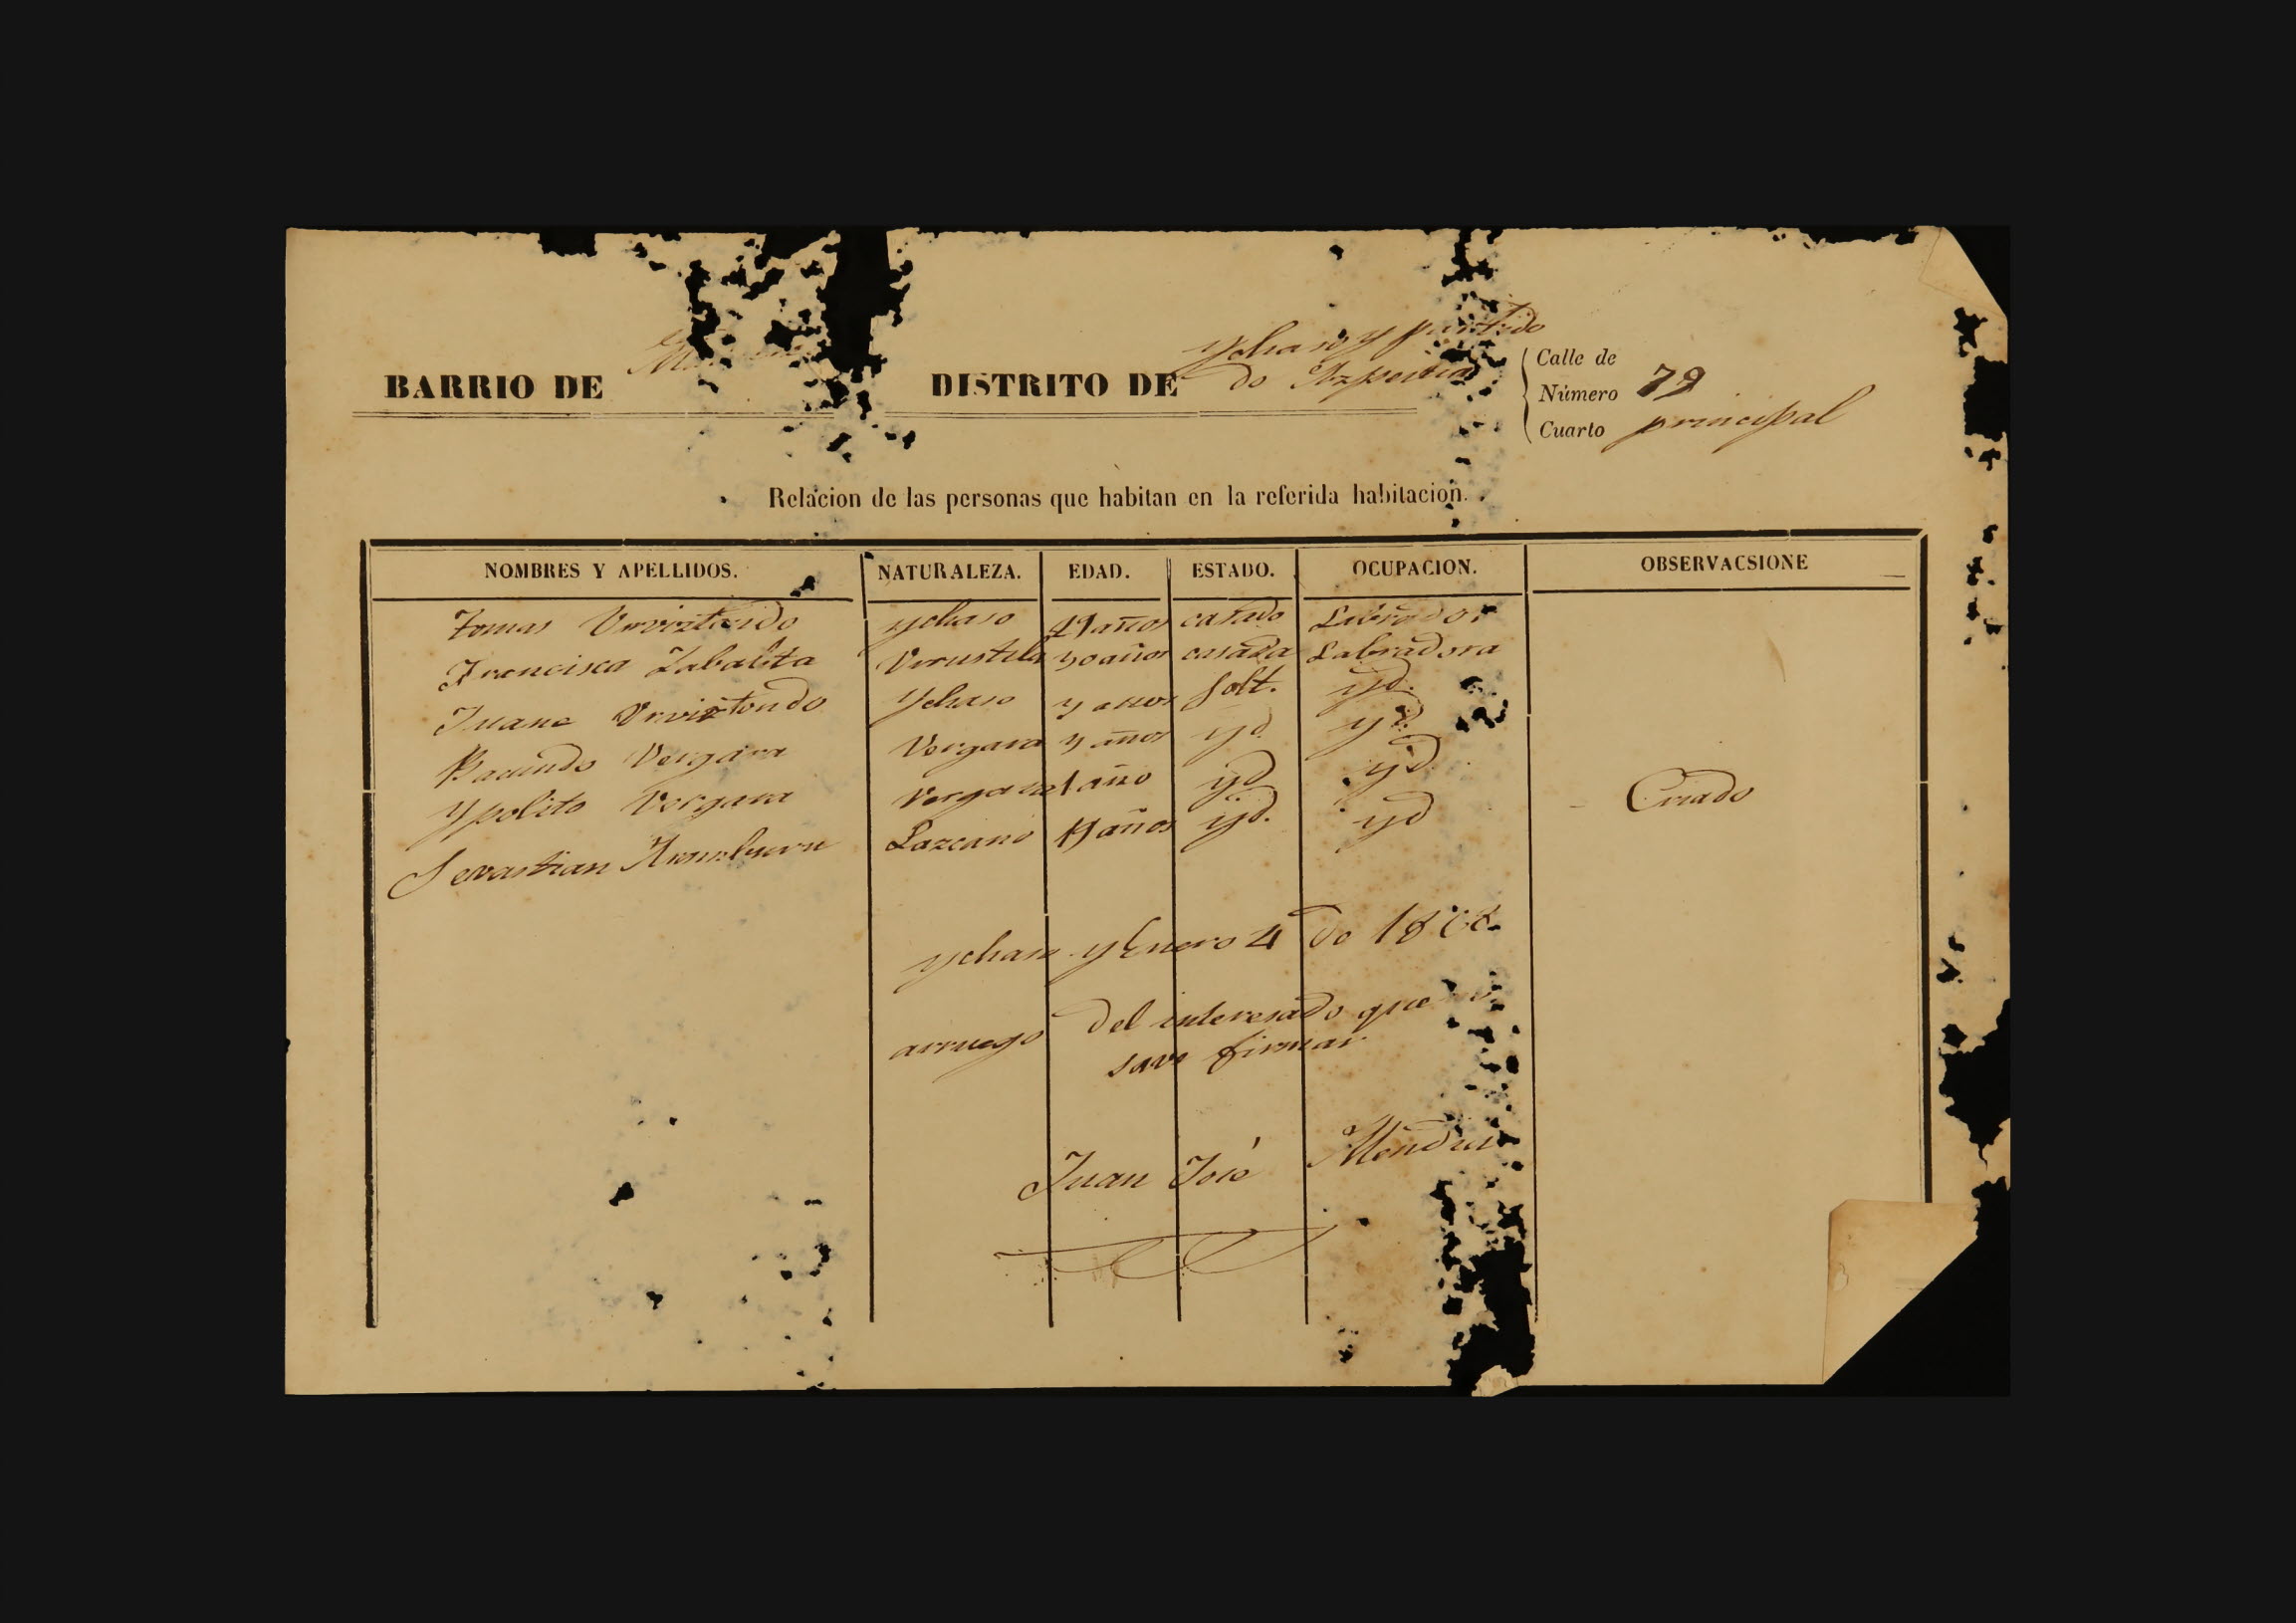 Ychaso y partido
BARRIO DE DISTRITO DE de Azpeitia
Calle de
Número 79
Cuarto principal
Relacion de las personas que habitan en la referida habitacion.
NOMBRES Y APELLIDOS. NATURALEZA. EDAD. ESTADO. OCUPACION. OBSERVACSIONE
Tomas Urviztondo ychaso 49 años casado Labrador
Francisca Zabaleta años casada Labradora
Juana Urviztondo Ychaso años Solt. yd.
Vergara Vergara años yd yd
Ypolito Vergara Vergara 1 año yd yd
Sevastian Lazcano 19 años yd. yd Criado
ychaso y Enero 4 de
arruego del interesado que no
save firmar
Juan José